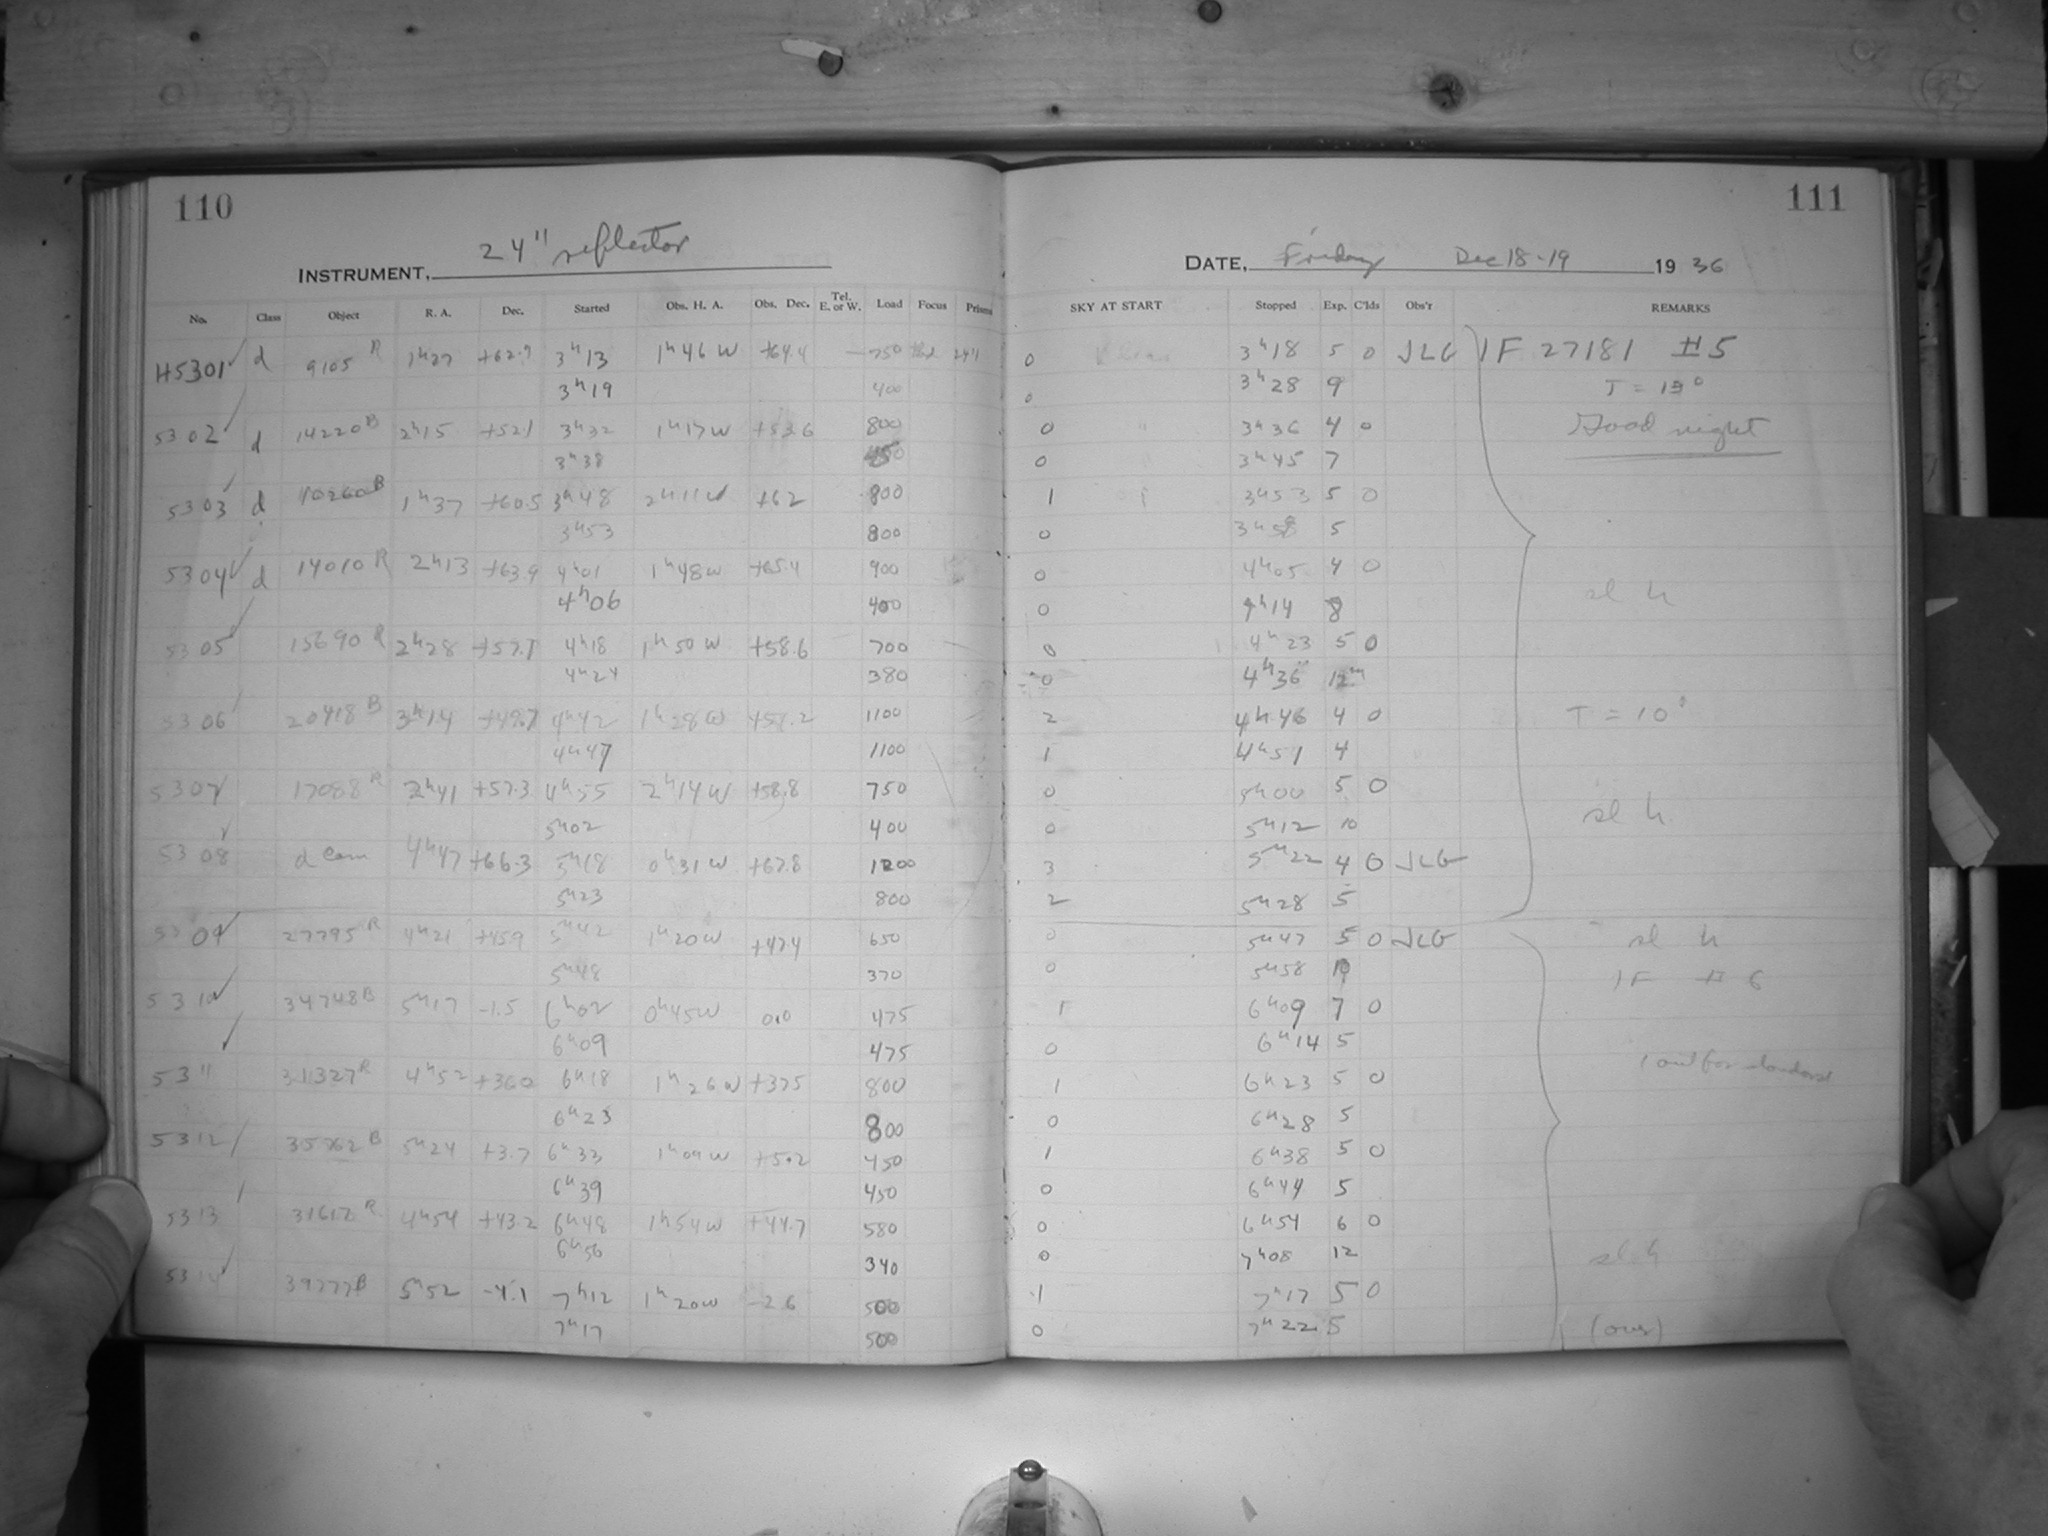 110
INSTRUMENT, 24" reflector
No. Class Object R. A. Dec. Started Obs. H. A. Obs. Dec. Tel. E. or W. Load Focus Prisms
H5301 d 9105 R 1h27 +62.9 3h13 1h46 W +64.4 750
3h19 400
5302 d 14220 B 2h15 +52.1 3h32 1h17 W +53.6 800
3h38
5303 d 10260 B 1h37 +60.5 3h48 2h11 W +62 800
3h53 800
5304 d 14010 R 2h13 +63.9 4h01 1h48 W +65.4 900
4h06 400
5305 15690 R 2h28 +57.1 4h18 1h50 W +58.6 700
4h24 380
5306 20418 B 3h14 +49.7 4h42 1h28 W +51.2 1100
4h47 1100
5307 17088 R 2h41 +57.3 4h55 2h14 W +58.8 750
5h02 400
5308 d Cam 4h47 +66.3 5h18 0h31 W +67.8 1200
5h23 800
5309 27795 R 4h21 +45.9 5h42 1h20 W +47.4 650
5h48 370
5310 34748 B 5h17 -1.5 6h02 0h45 W 0.0 475
6h09 475
5311 31327 R 4h52 +36.0 6h18 1h26 W +37.5 800
6h23 800
5312 35762 B 5h24 +3.7 6h33 1h09 W +5.2 450
6h39 450
5313 31617 R 4h54 +43.2 6h48 1h54 W +44.7 580
6h56 340
5314 39777 B 5h52 -4.1 7h12 1h20 W -2.6 500
7h17 500
111
DATE, Friday Dec 18-19 1936
SKY AT START Stopped Exp. C'lds Obs'r REMARKS
0 Clear 3h18 5 0 JLG IF 27181 #5
0 3h28 9 T =
0 " 3h36 4 0 Good night
0 3h45 7
1 " 3h53 5 0
0 3h58 5
0 4h05 4 0
0 4h14 8 sl h
0 4h23 5 0
0 4h36 12m
2 4h46 4 0 T = 10°
1 4h51 4
0 5h00 5 0 sl h
0 5h12 10
3 5h22 4 0 JLG
2 5h28 5
0 5h47 5 0 JLG sl h
0 5h58 10 IF #6
1 6h09 7 0
0 6h14 5 1 out for standard
1 6h23 5 0
0 6h28 5
1 6h38 5 0
0 6h44 5
0 6h54 6 0
0 7h08 12 sl h
1 7h17 5 0
0 7h22 5 (over)